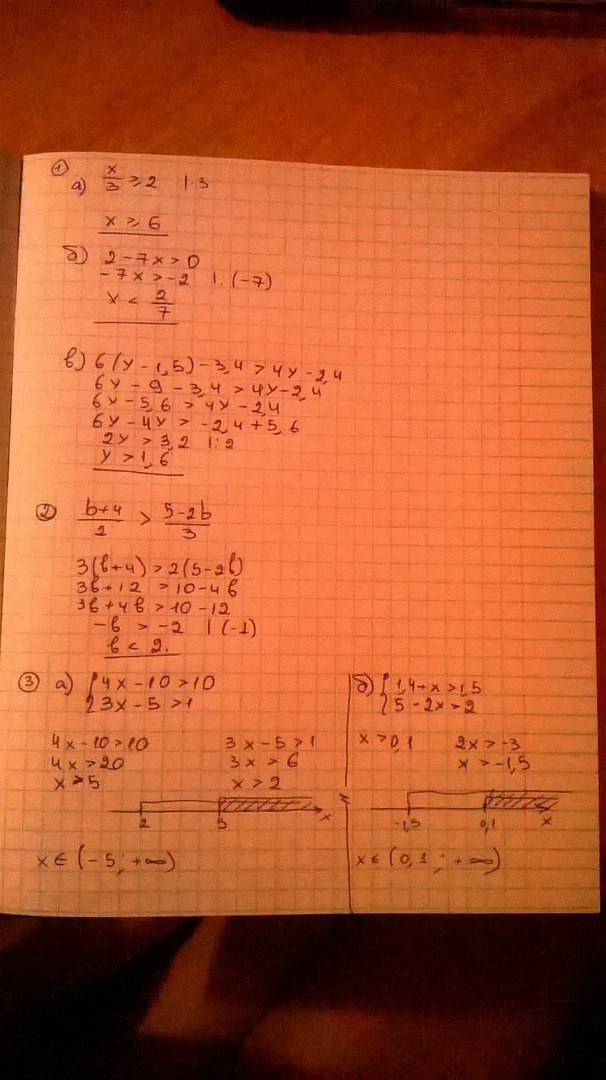 ① а) x/3 ≥ 2 | · 3
x ≥ 6
б) 2 - 7x > 0
-7x > -2 | : (-7)
x < 2/7
в) 6(y - 1,5) - 3,4 > 4y - 2,4
6y - 9 - 3,4 > 4y - 2,4
6y - 5,6 > 4y - 2,4
6y - 4y > -2,4 + 5,6
2y > 3,2 | : 2
y > 1,6
② b+4/2 > 5-2b/3
3(b+4) > 2(5-2b)
3b + 12 > 10 - 4b
3b + 4b > 10 - 12
-b > -2 | (-1)
b < 2.
③ а) { 4x - 10 > 10
3x - 5 > 1
4x - 10 > 10
4x > 20
x > 5
3x - 5 > 1
3x > 6
x > 2
2 5 x
x ∈ (-5; +∞)
б) { 1,4 + x > 1,5
5 - 2x > 2
x > 0,1
2x > -3
x > -1,5
-1,5 0,1 x
x ∈ (0,1; +∞)